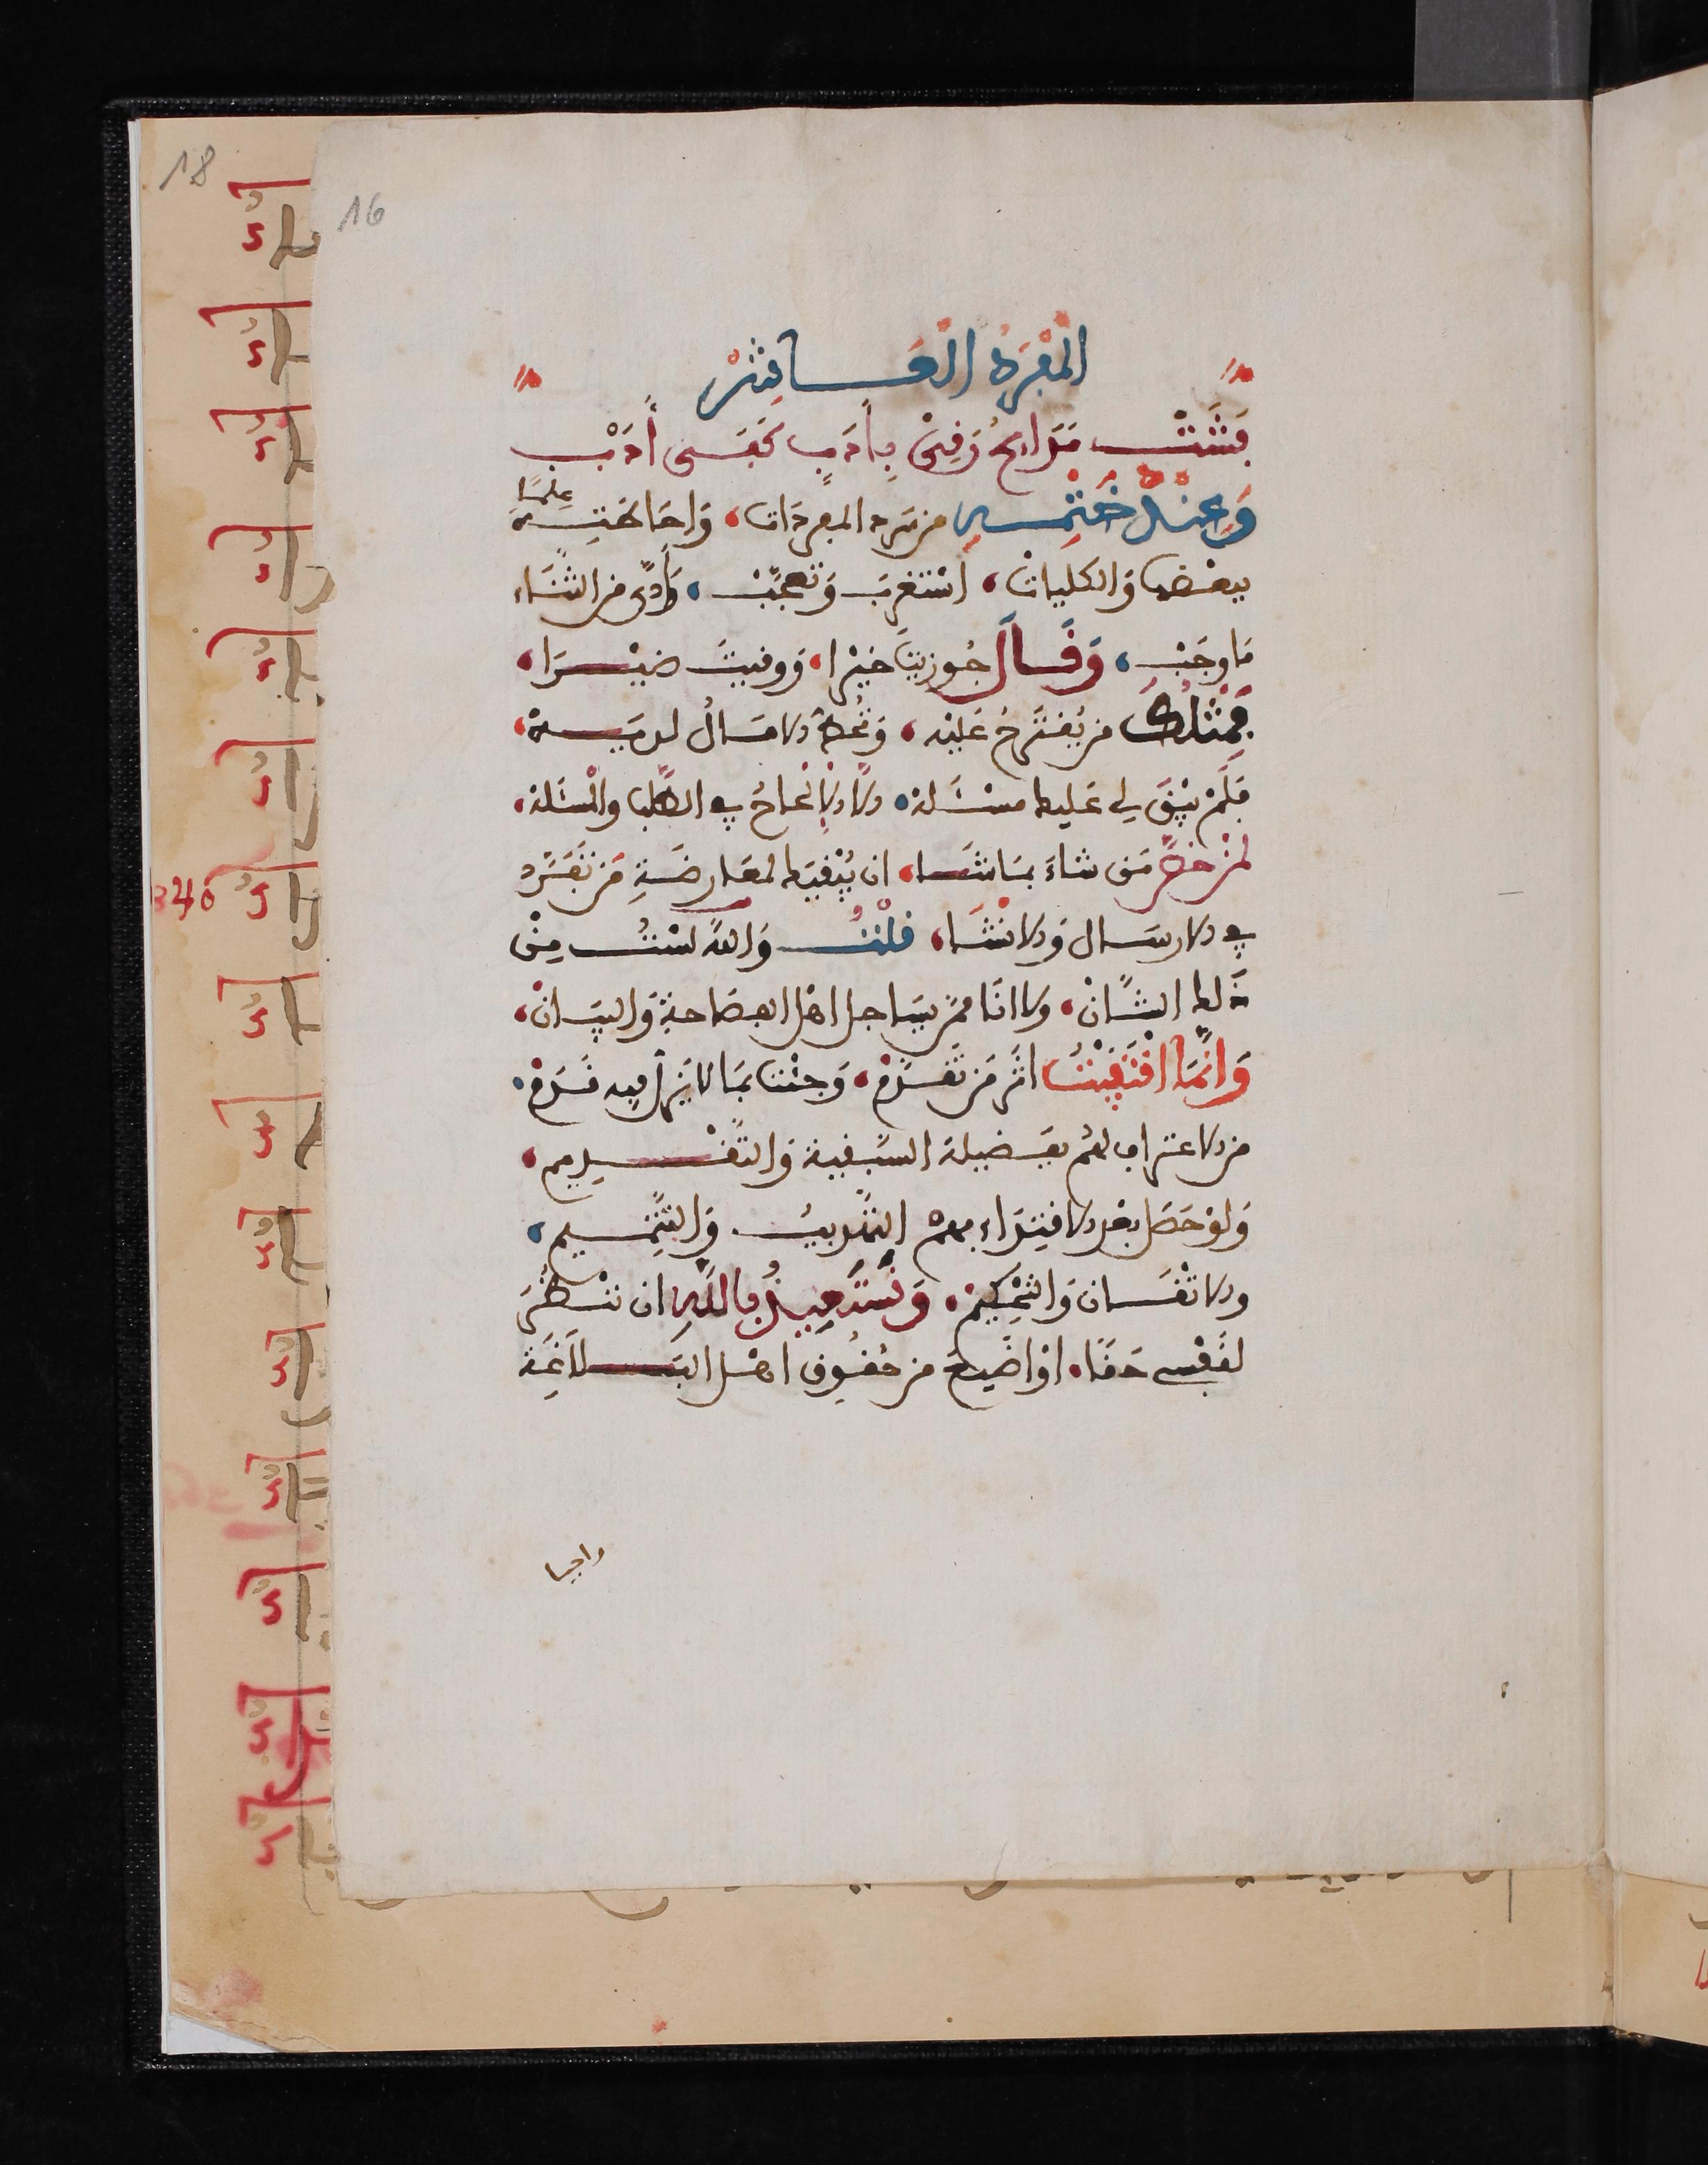 18
16
المفرد العاشر
فشت مدايح رفين بأدب كفى أدب
وعند ختمه من سرد المفردات، واحاطته علما
ببعضها والكليات، استغرب وتعجب، وأدى من الثناء
ما وجب، وقال جوزيت خيرا، ووقيت ضيرا،
فمثلك من يقترح عليه، وتحط الامال لديه،
فلم يبق لي عليك مسئلة، ولا الالحاح في الطلب والمسئلة،
لمن خص من شاء بما شاء، ان يبقيك لمعارضة من تقدم
في الارسال والانشاء، قلت والله لست من
ذلك الشان، ولا انا ممن يساجل اهل الفصاحة والبيان،
وانما اقتفيت اثر من تقدم، وجئت بما لا يزل فيه قدم،
من الاعتراف لهم بفضيلة السبقية والتقديم،
ولو حصل بعد الاقتداء بهم التدريب والتتميم،
والاتقان والتحكيم، ونستعيذ بالله ان ننظر
لنفس حقا، او اضيع من حقوق اهل البلاغة
راجيا
340